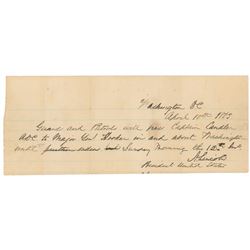 Washington DC
April 10th 1863
Guard and Patrols will pass Captain Candler
ADC to Major Genl Hooker in and about Washington
until Sunday morning the 12th Inst
A Lincoln
President United States